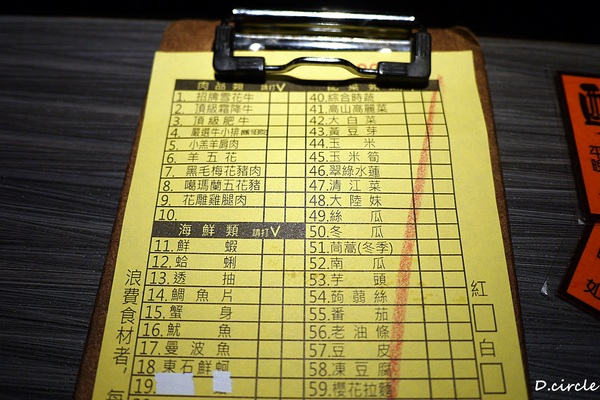 肉品類 請打V
1. 招牌雪花牛
2. 頂級霜降牛
3. 頂級肥牛
4. 嚴選牛小排
5. 小羔羊肩肉
6. 羊五花
7. 黑毛梅花豬肉
8. 噶瑪蘭五花豬
9. 花雕雞腿肉
10.
海鮮類 請打V
11. 鮮蝦
12. 蛤蜊
13. 透抽
14. 鯛魚片
15. 蟹身
16. 魷魚
17. 曼波魚
18 東石鮮蚵
19.
40. 綜合時蔬
41. 高山高麗菜
42. 大白菜
43. 黃豆芽
44. 玉米
45. 玉米筍
46. 翠綠水蓮
47. 清江菜
48. 大陸妹
49. 絲瓜
50. 冬瓜
51. 茼蒿(冬季)
52. 南瓜
53. 芋頭
54. 蒟蒻絲
55. 番茄
56. 老油條
57. 豆皮
58. 凍豆腐
59. 櫻花拉麵
浪費食材者，每
紅
白
D.circle